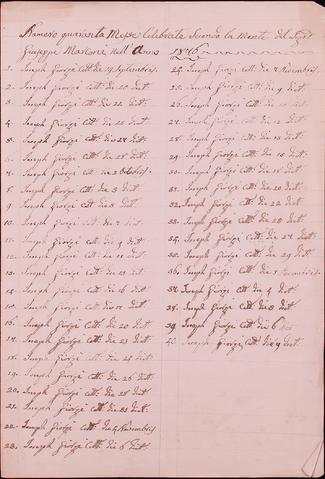 Numero quaranta Messe Celebrate secondo la mente del Sigr
Giuseppe Marconi nell'Anno 1846
1. Joseph Giorgi Cott. die 19 Septembris.
2. Joseph Giorgi Cott. die 20 dict.
3. Joseph Giorgi Cott. die 22 dict.
4. Joseph Giorgi Cott. die 20 dict.
5. Joseph Giorgi Cott. die 24 dict.
6. Joseph Giorgi Cott. die 28 dict.
7. Joseph Giorgi Cott. die 2 Octobris.
8. Joseph Giorgi Cott. die 3 dict.
9. Joseph Giorgi Cott. die 6 dict.
10. Joseph Giorgi Cott. die dict.
11. Joseph Giorgi Cott. die 9 dict.
12. Joseph Giorgi Cott. die 11 dict.
13. Joseph Giorgi Cott. die 13 dict.
14. Joseph Giorgi Cott. die 16 dict.
15. Joseph Giorgi Cott. die dict.
16. Joseph Giorgi Cott. die 20 dict.
17. Joseph Giorgi Cott. die 23 dict.
18. Joseph Giorgi Cott. die 24 dict.
19. Joseph Giorgi Cott. die 26 dict.
20. Joseph Giorgi Cott. die 28 dict.
21. Joseph Giorgi Cott. die 31 dict.
22. Joseph Giorgi Cott. die 4 Novembris
23. Joseph Giorgi Cott. die 6 dict.
24. Joseph Giorgi Cott. die Novembris.
25. Joseph Giorgi Cott. die 9 dict.
26. Joseph Giorgi Cott. die dict.
27. Joseph Giorgi Cott. die dict.
28. Joseph Giorgi Cott. die 13 dict.
29. Joseph Giorgi Cott. die 16 dict.
30. Joseph Giorgi Cott. die 18 dict.
31. Joseph Giorgi Cott. die 20 dict.
32. Joseph Giorgi Cott. die 22 dict.
33. Joseph Giorgi Cott. die dict.
34. Joseph Giorgi Cott. die 27 dict.
35. Joseph Giorgi Cott. die 29 dict.
36. Joseph Giorgi Cott. die
37. Joseph Giorgi Cott. die 4 dict.
38. Joseph Giorgi Cott. die dict.
39. Joseph Giorgi Cott. die 6 dict.
40. Joseph Giorgi Cott. die 9 dict.